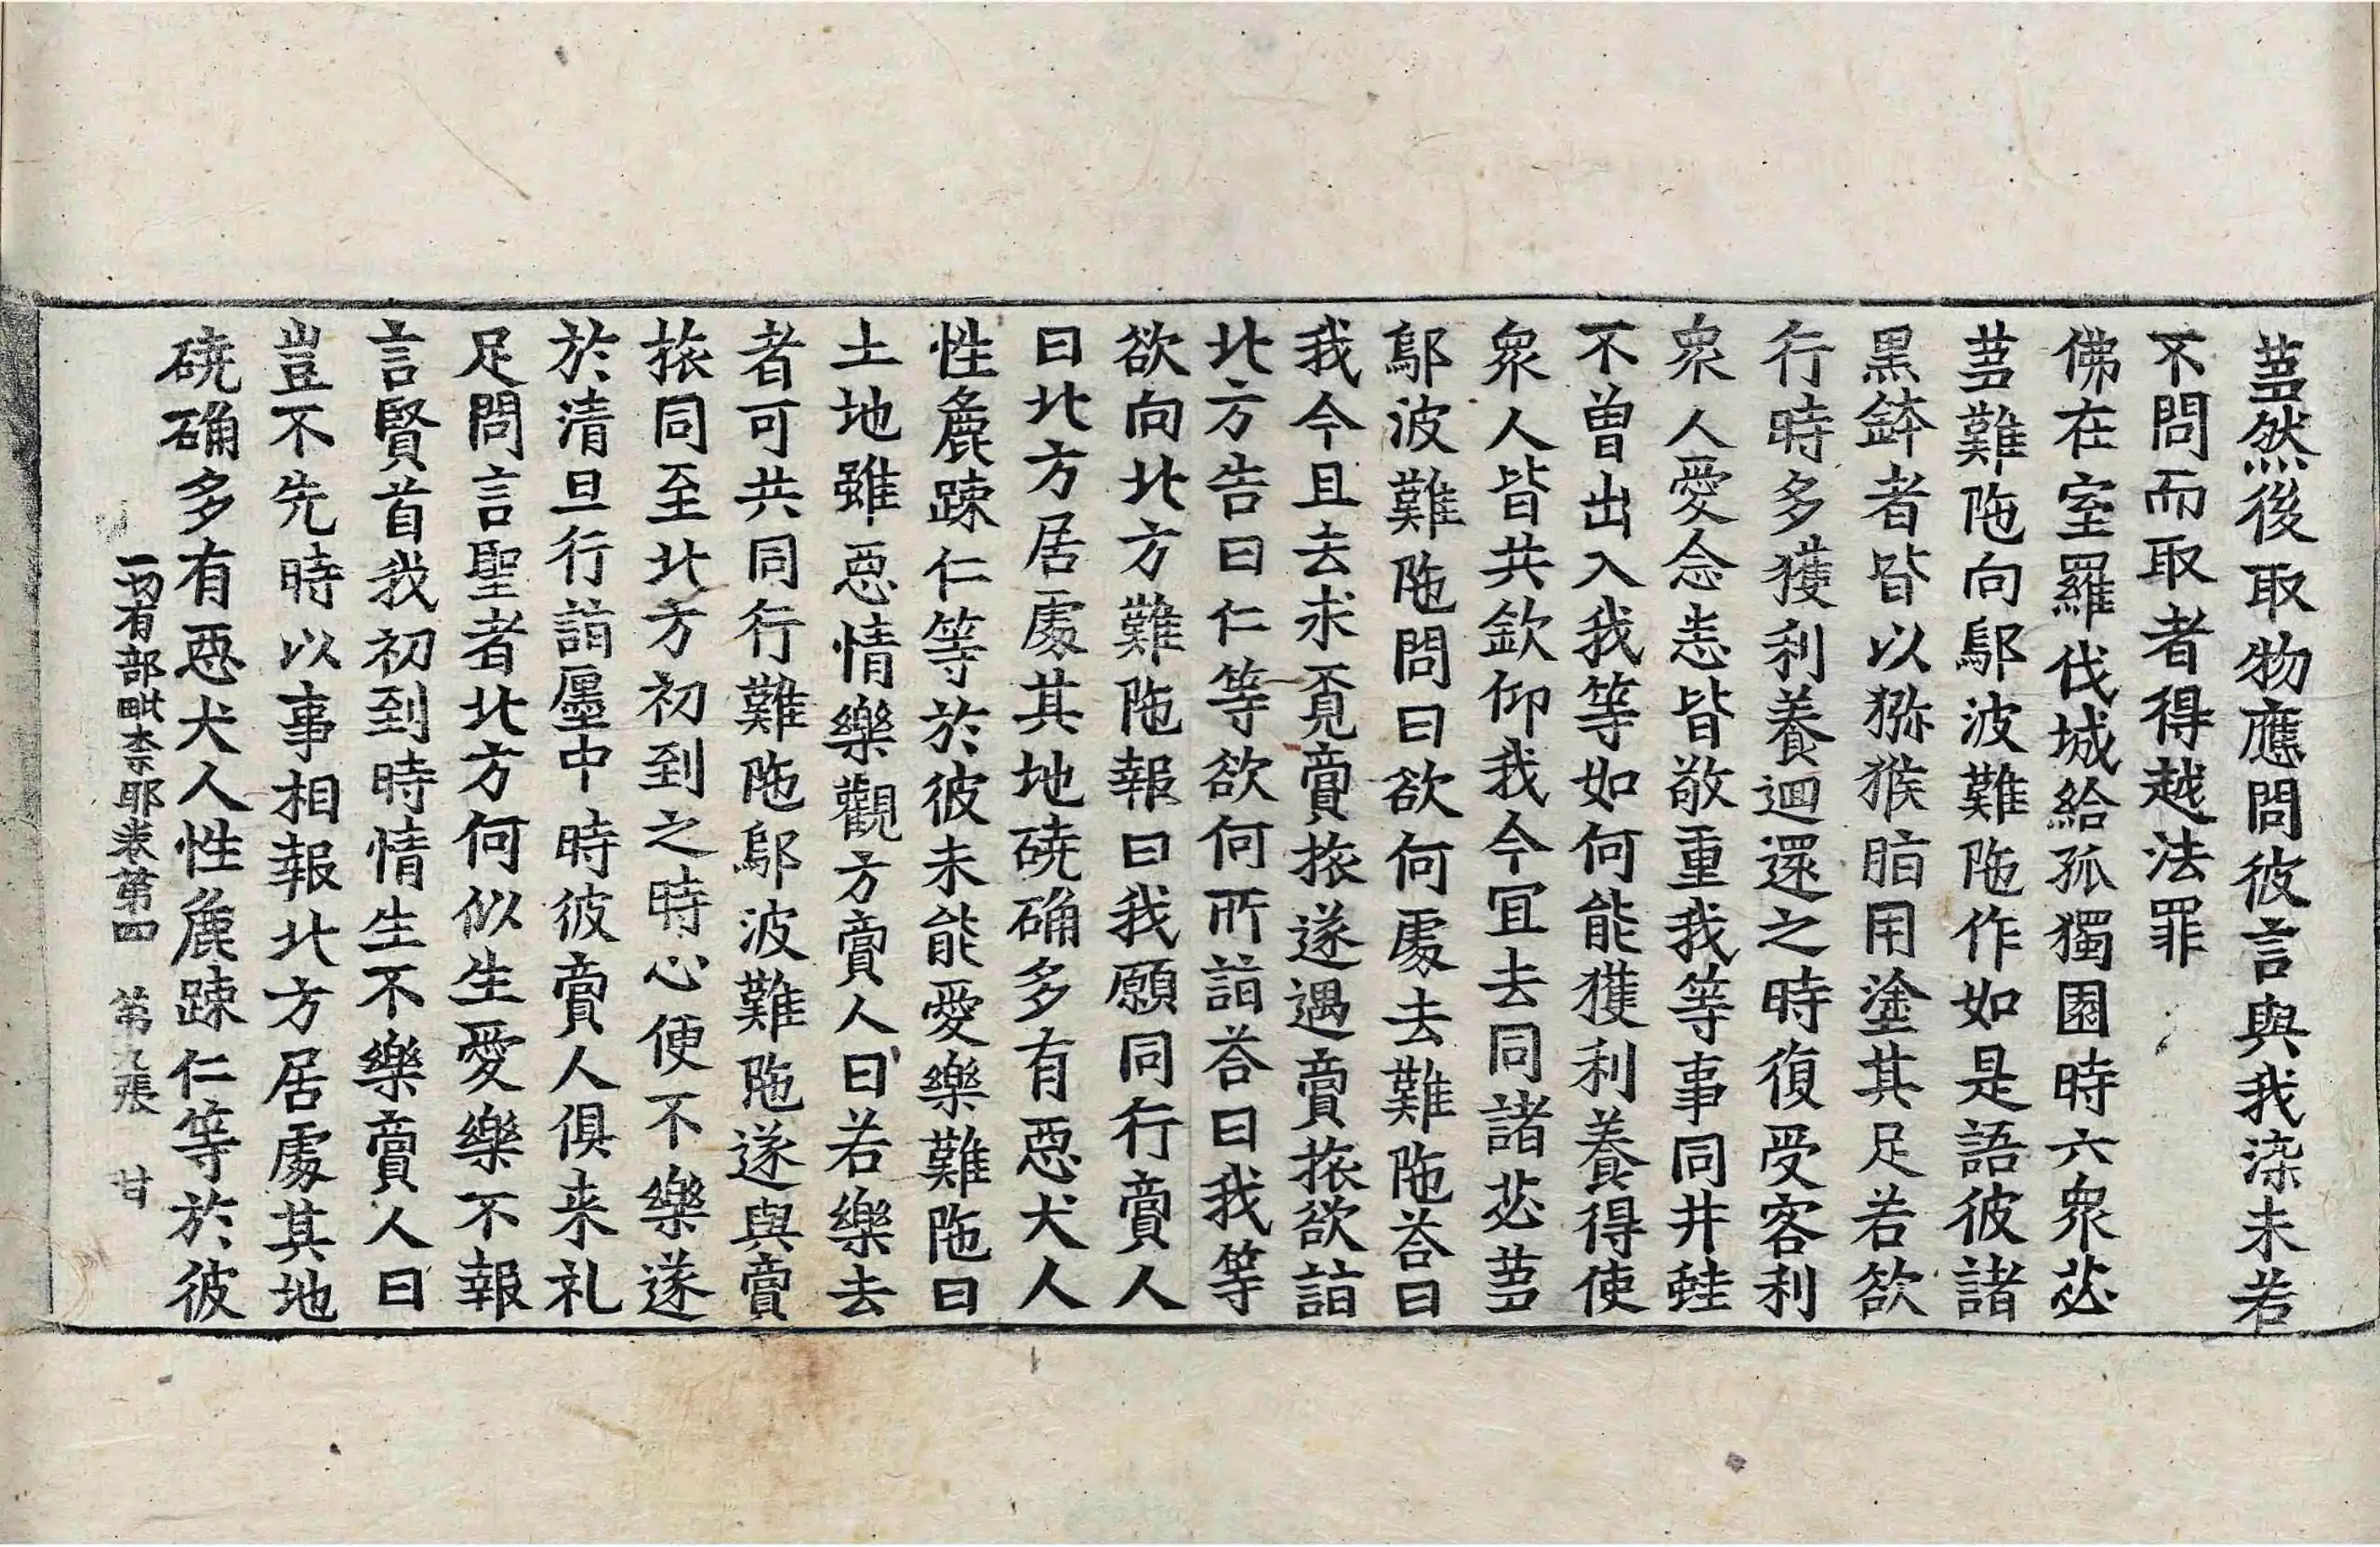 蒭然後取物應問彼言與我染未若
不問而取者得越法罪
佛在室羅伐城給孤獨園時六衆苾
蒭難陁向鄔波難陁作如是語彼諸
黑鉢者皆以猕猴脂用塗其足若欲
行時多獲利養迴還之時復受客利
衆人愛念悉皆敬重我等事同井蛙
不曾出入我等如何能獲利養得使
衆人皆共欽仰我今冝去同諸苾蒭
鄔波難陁問曰欲何處去難陁荅曰
我今且去求覔賣旅遂遇賣旅欲詣
北方告曰仁等欲何所詣荅曰我等
欲向北方難陁報曰我願同行賣人
曰北方居處其地磽确多有惡犬人
性麁踈仁等於彼未能愛樂難陁曰
土地雖惡情樂觀方賣人曰若樂去
者可共同行難陁鄔波難陁遂與賣
旅同至北方初到之時心便不樂遂
於清旦行詣㕓中時彼賣人俱来礼
足問言聖者北方何似生愛樂不報
言賢首我初到時情生不樂賣人曰
豈不先時以事相報北方居處其地
磽确多有惡犬人性麁踈仁等於彼
一切有部毗柰耶卷第四 第九張 甘